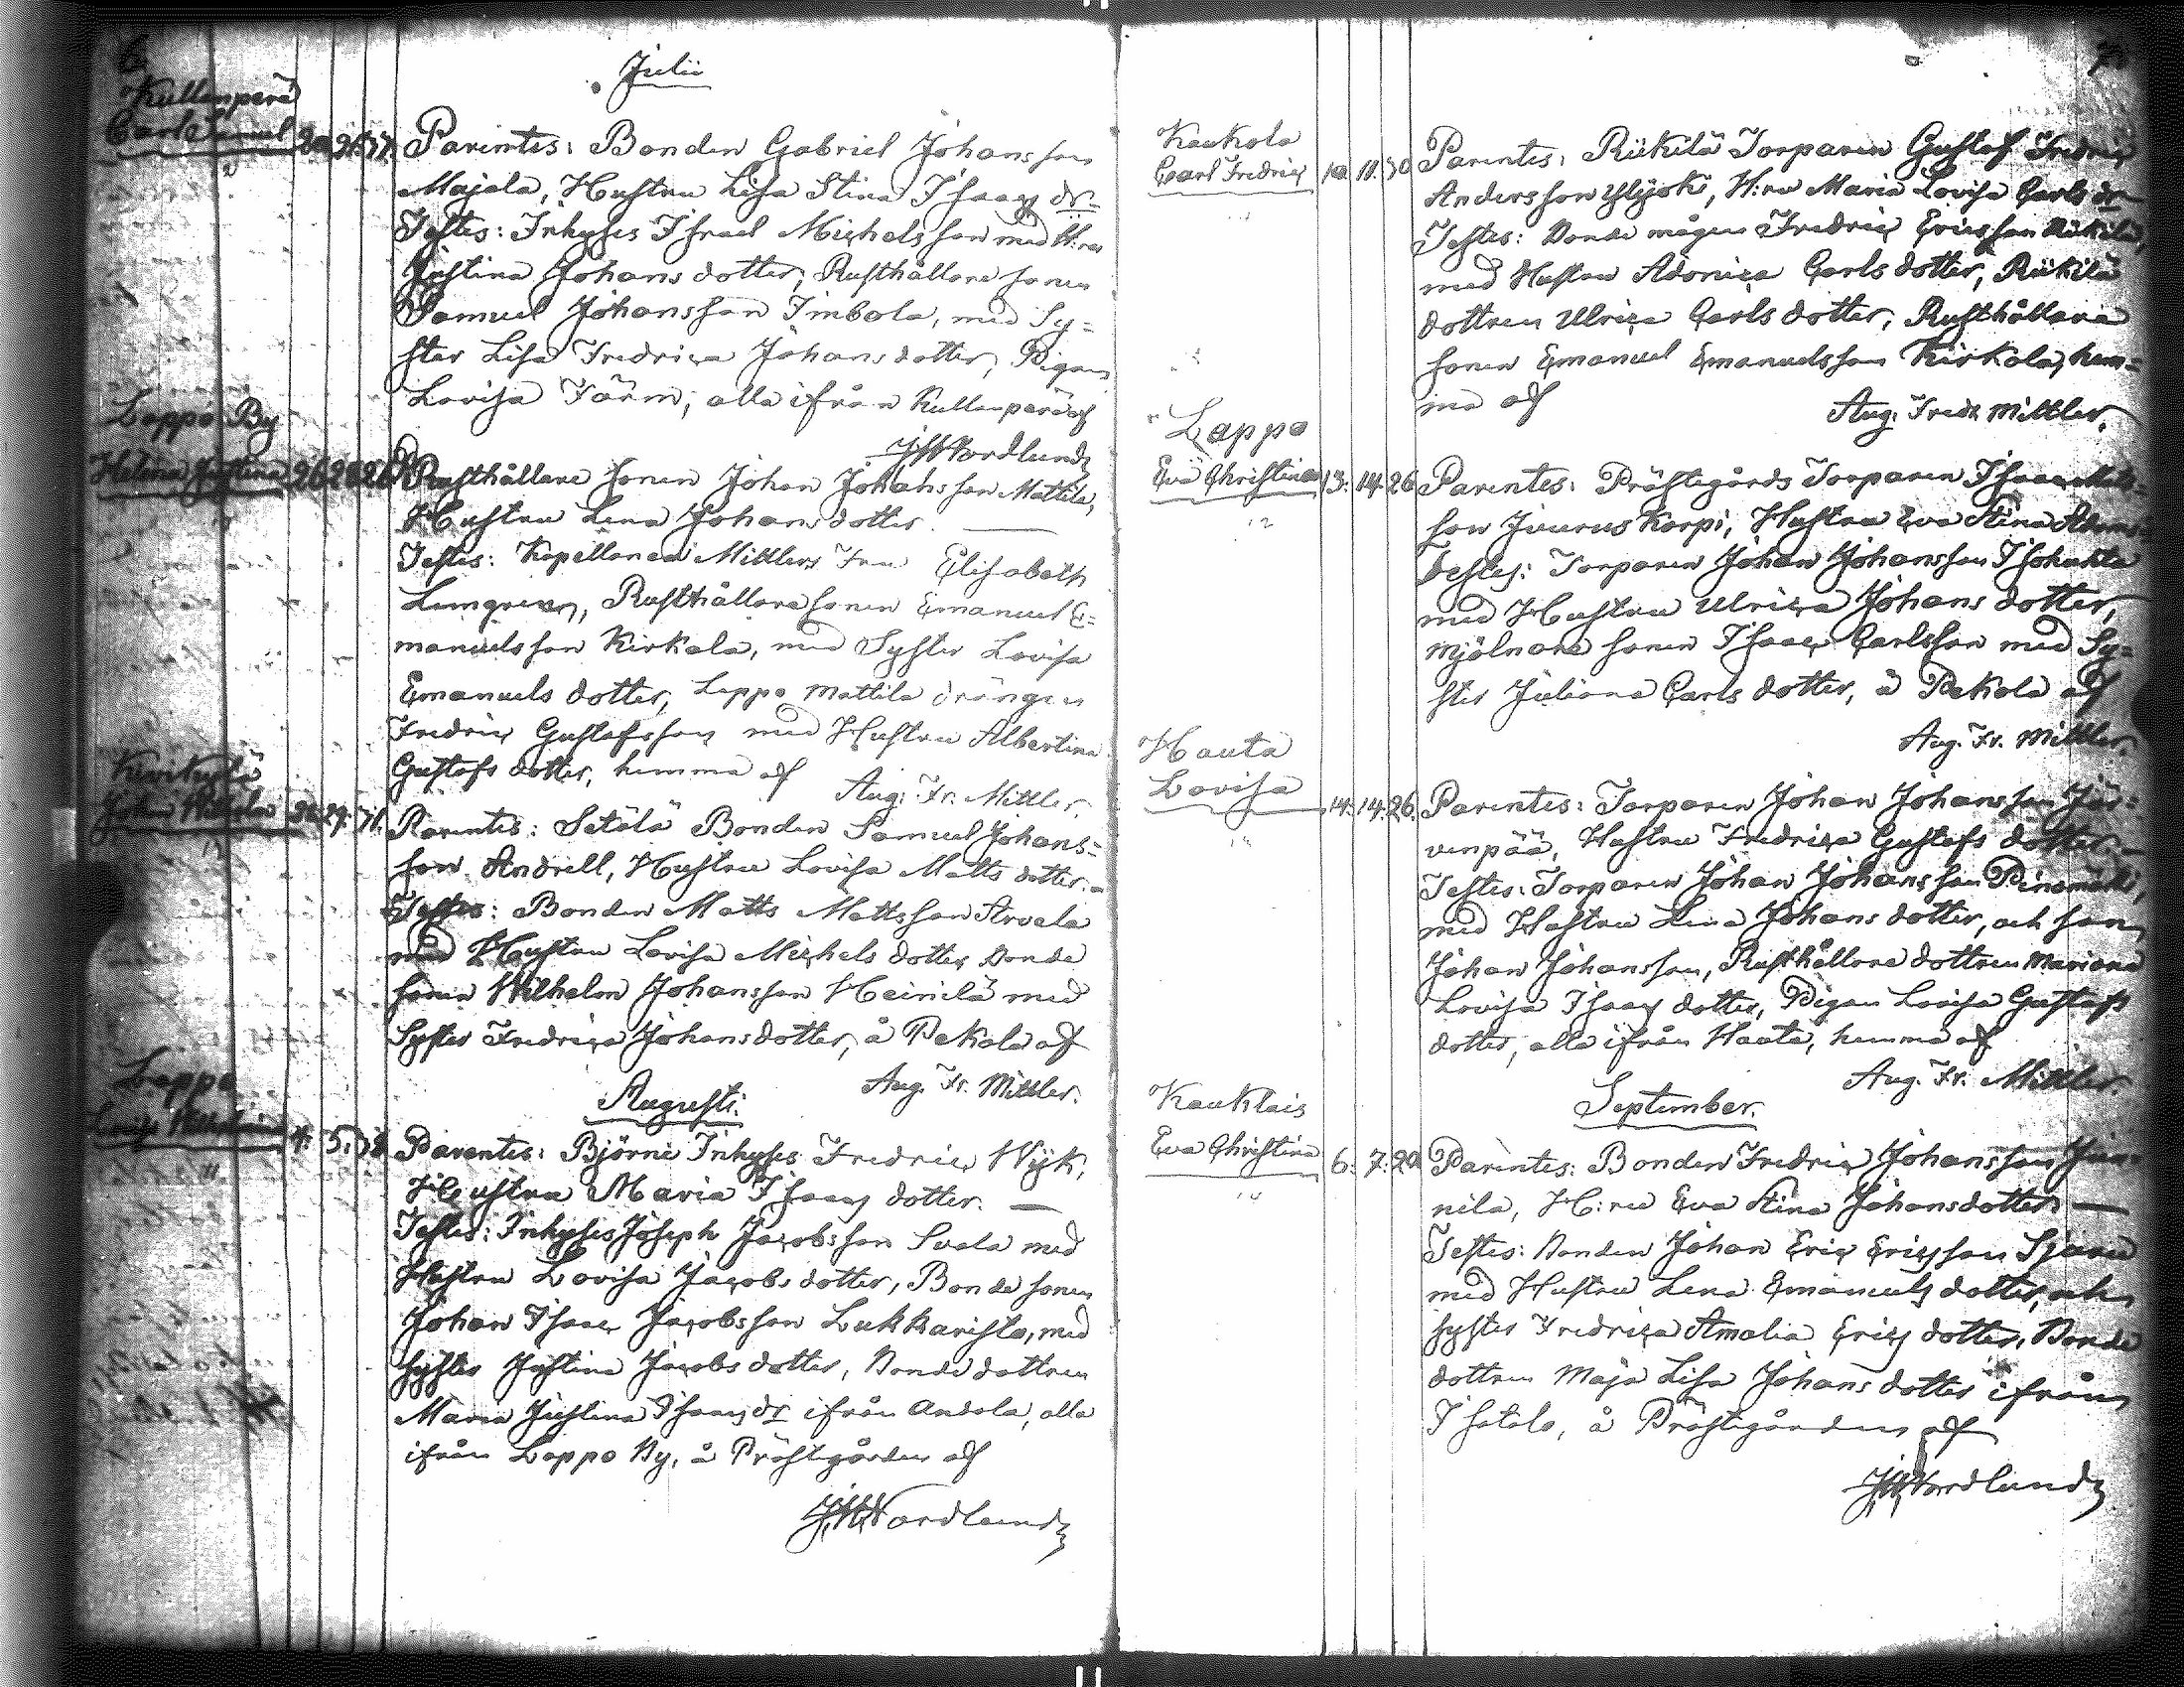 6
Julii
Kullanperä
Carl Samuel 20. 21. 37.
Parentes: Bonden Gabriel Johansson
Majala, Hustru Lisa Stina Isaacs dr
Testes: Inhyses Israel Michelsson med H:ru
Justina Johans dotter, Rusthållare sonen
Samuel JohanssonImbola, med Sy=
ster Lisa Fredrica Johansdotter, Pigan
Lovisa Färm, alla ifrån Kullanperä af
JWNordlund
Lappo By
Helena Justina 26 28 26
Rusthållare sonen Johan Johansson Mattila,
Hustru Lena Johansdotter.
Testes: Kapellanen Mittlers Fru Elisabeth
Limgren, Rusthållare sonen Emanuel E=
manuelsson Kirkola, med Syster Lovisa
Emanuels dotter, Lappo Mattila drängen
Fredric Gustafsson med Hustru Albertina
Gustafs dotter, hemma af
Aug: Fr. Mittler.
Kivikylä
Johan Wilhelm 29.
Parentes: Setälä Bonden Samuel Johans=
son Andrell, Hustru Lovisa Matts dotter.
Testes: Bonden Matts Mattsson Arvela
med Hustru Lovisa Michels dotter Bonde
sonen Wilhelm Johansson Heinilä med
Syster Fredrica Johansdotter, å Pakola af
Aug. Fr. Mittler.
Augusti.
Lappo
4. 5. 38
Parentes: Björni Inhyses Fredric Wijk,
Hustru Maria Isaacs dotter.
Testes: Inhyses Joseph Jacobsson Svala med
Hustru Lovisa Jacobs dotter, Bonde sonen
Johan Isaac Jacobsson Lukkarista, med
syster Justina Jacobs dotter, Bonde dottren
Maria Justina Isaacs dr ifrån Andola, alla
ifrån Lappo By, å Prästgården af
JWNordlund
7.
Kaukola
Carl Fredric 10. 11. 30
Parentes: Riikilä Torparen Gustaf Fredric
Andersson Ylijoki, H:ru Maria Lovisa Carls dr
Testes: Bonde mågen Fredric Ericsson Riikilä,
med Hustru Adonica Carls dotter, Riikilä
dottren Ulrica Carls dotter, Rusthållare
sonen Emanuel Emanuelsson Kirkola, hem=
ma af
Aug: Fredr. Mittler.
Lappo
Eva Christina 13. 14. 26
12
Parentes: Prästegårds Torparen Isaac Mats=
son Juurus Korpi, Hustru Eva Stina Adams
Testes: Torparen Johan Johansson Isohukta
med Hustru Ulrica Johans dotter,
mjölnare sonen Isaac Carlsson med Sy=
ster Juliana Carls dotter, å Pakola af
Aug. Fr. Mittler.
Hauta
Lovisa 14. 14. 26.
Parentes: Torparen Johan Johansson Jär=
venpää, Hustru Fredrica Gustafs dotter.
Testes: Torparen Johan Johansson Pinomäki,
med Hustru Lena Johans dotter, och son
Johan Johansson, Rusthållare dottren Mariana
Lovisa Isaacs dotter, Pigan Lovisa Gustafs
dotter, alla ifrån Hauta, hemma af
Aug. Fr. Mittler.
September.
Kauklais
Eva Christina 6. 7. 20
Parentes: Bonden Fredric Johansson
nila, H:ru Eva Stina Johansdotter
Testes: Bonden Johan Eric Ericsson Sjaru
med Hustru Lena Emanuels dotter, och
syster Fredrica Amalia Erics dotter, Bonde
dottren Maja Lisa Johans dotter ifrån
Isotalo, å Prästgården af
JWNordlund